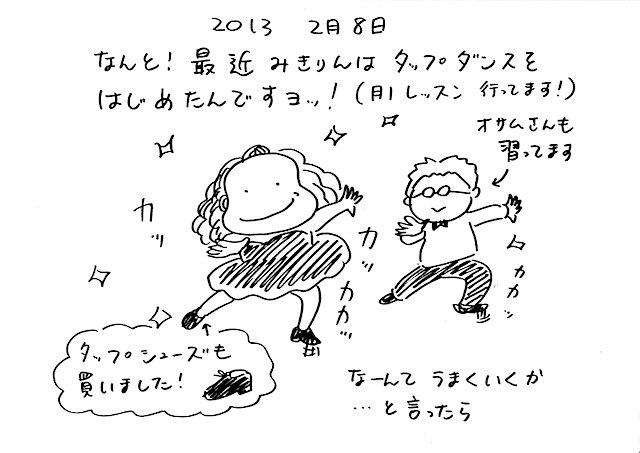 2013 2月8日
なんと！最近 みきりんは タップダンスを
はじめたんですヨッ！（月1 レッスン 行ってます！）
オサムさんも
習ってます
カッ
カッ
カカッ
カカッ
タップシューズも
買いました！
なーんて うまくいくか
…と言ったら